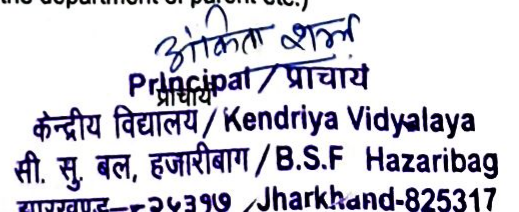 the department of parent etc.)
अंकिता शर्मा
Principal / प्राचार्य
प्राचार्य
केन्द्रीय विद्यालय / Kendriya Vidyalaya
सी. सु. बल, हजारीबाग / B.S.F Hazaribag
झारखण्ड-825317 Jharkhand-825317